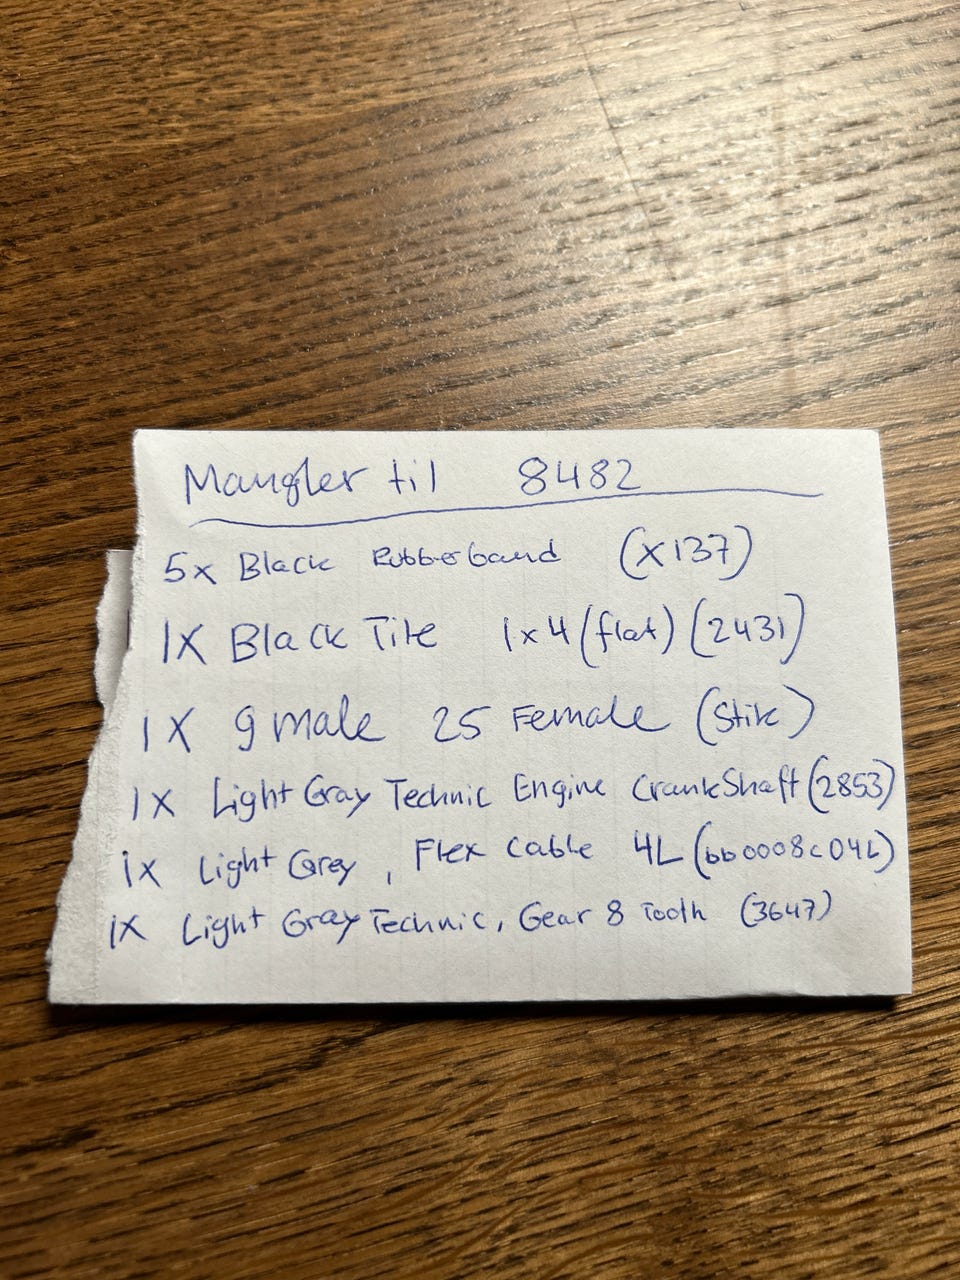 Mangler til 8482
5x Black Rubberband (x137)
1x Black Tile 1x4 (flat) (2431)
1x 9 male 25 Female (Stik)
1x Light Gray Technic Engine CrankShaft (2853)
1x Light Grey, Flex Cable 4L (bb0008c04L)
1x Light Gray Technic, Gear 8 Tooth (3647)